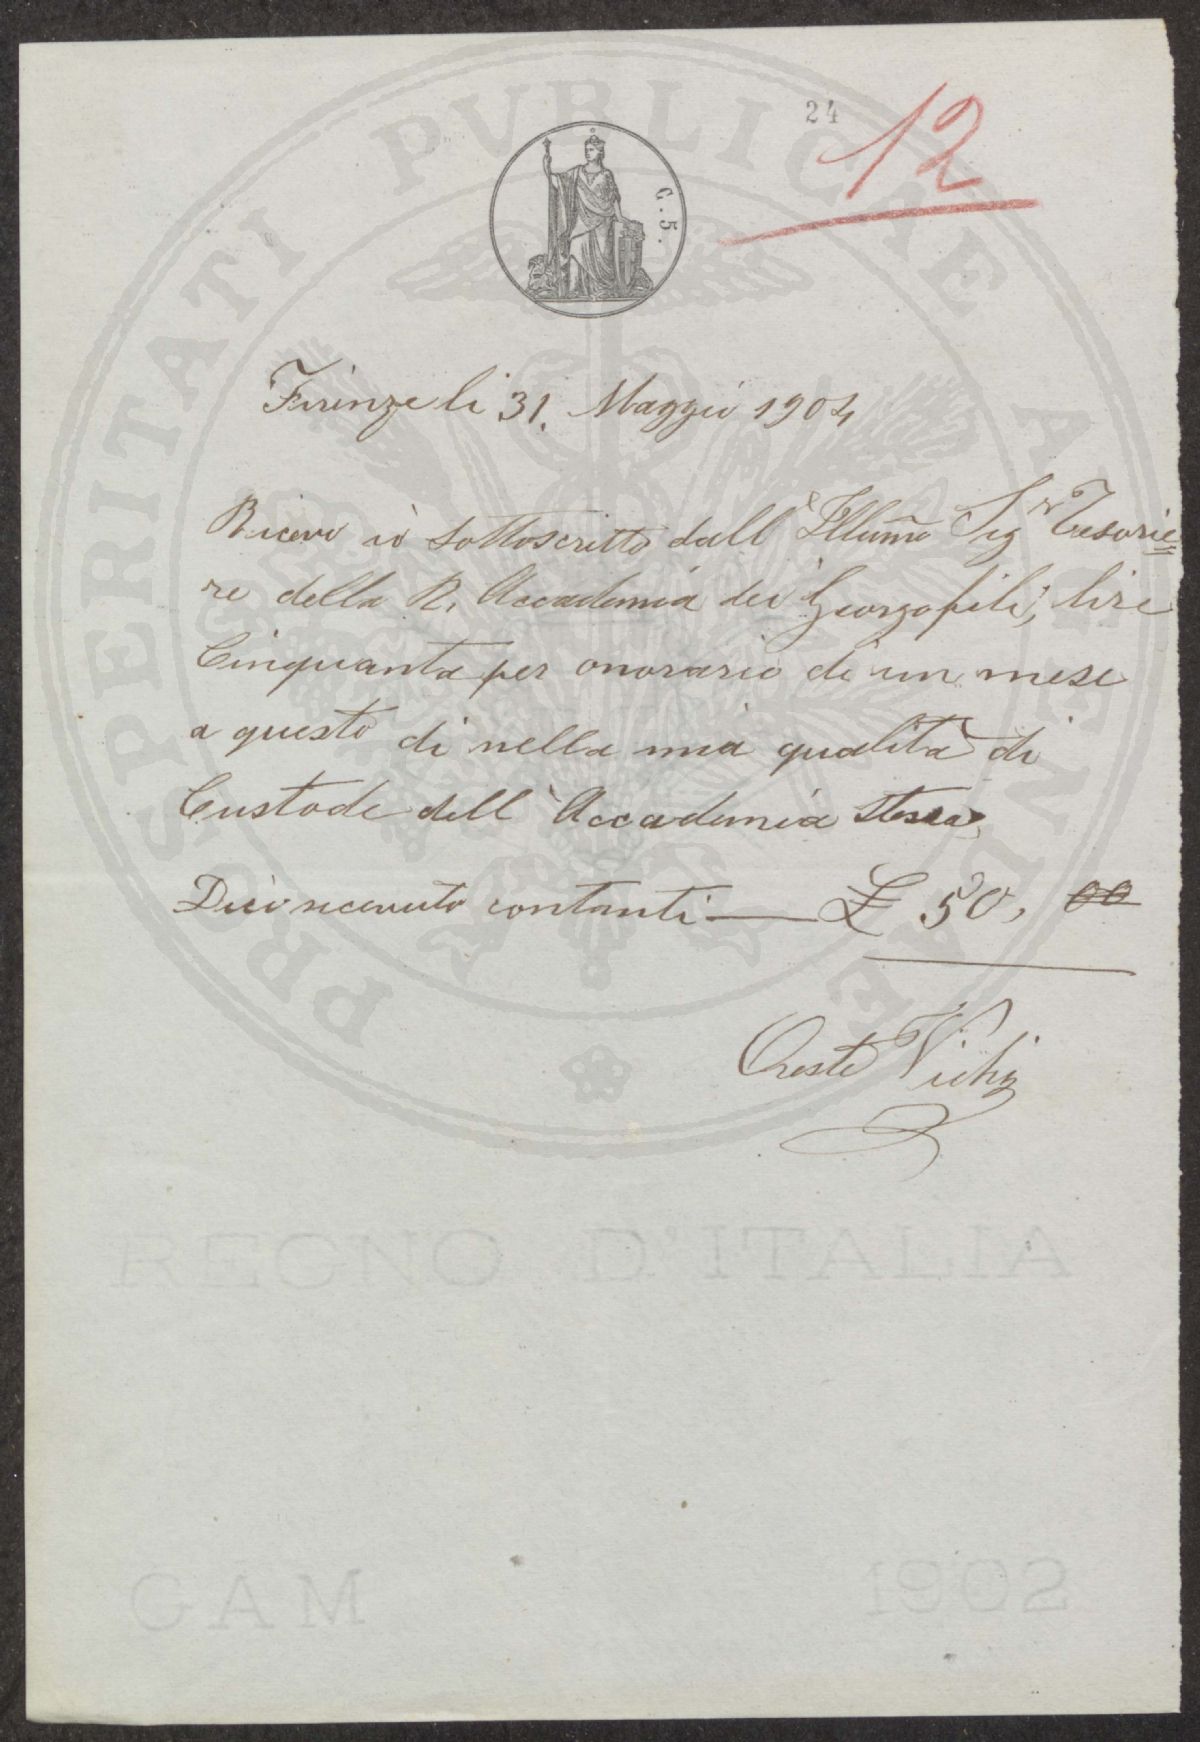 24
12
C. 5.
PROSPERITATI PVBLICAE AVGENDAE
Firenze li 31. Maggio 1904
Ricevo io sottoscritto dall' Illumo Sigr Tesorie=
re della R. Accademia dei Georgofili, lire
Cinquanta per onorario di un mese
a questo di nella mia qualità di
Custode dell' Accademia stessa
Dico ricevuto contanti — £ 50, 00
Oreste Vichi
REGNO D'ITALIA
GAM 1902